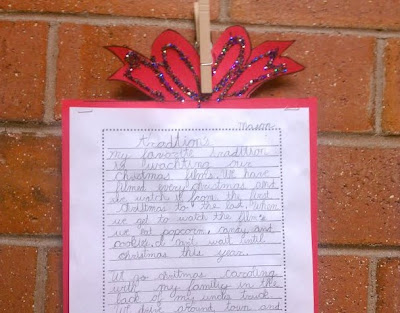 Mason
Tradition's
My favorite tradition
is wachting our
Christmas films. We have
filmed every christmas and
we watch it from the first
christmas to the last. When
we get to watch the film's
we eat popcorn, candy, and
cookies. I not wait until
christmas this year.
We go christmas caroling
with my familys in the
back of my uncls truck.
We drive around town and